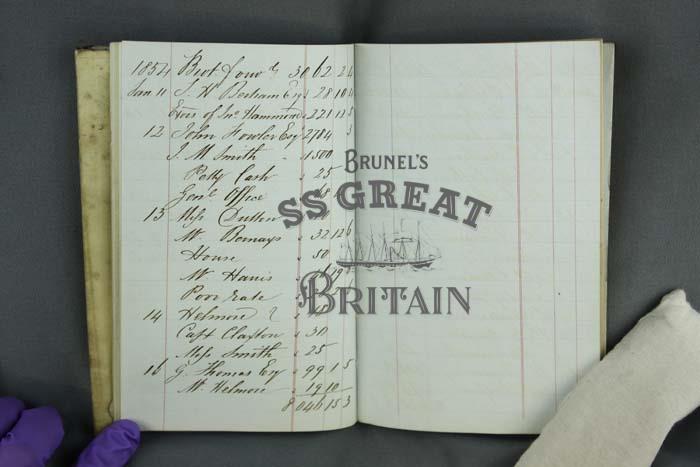 1854 Brot. forwd 3062 2 4
Jan 11 S. W. Benham Esq 28 10 4
Exors of Jno Hammond 221 12 5
12 John Fowler Esq 2784
J. M Smith 1500
Petty Cash 25
Genl Office
13 Miss
Mr Bernays 32 12 6
House 50
Mr Harris
Poor rate
14 Helmore
Capt Claxton 30
Miss Smith 25
16 G. Thomas Esq 99 1 5
Mr Helmore 19 10
8046 15 3
BRUNEL'S
SS GREAT
BRITAIN